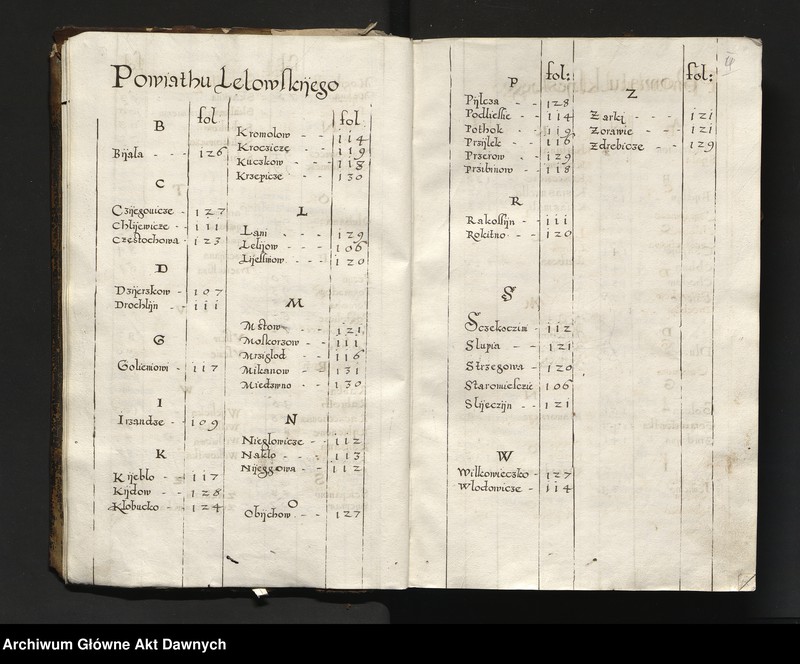 Powiathu Lelowskijego
fol
B
Bijala - - - 126
C
Czijegowicze - 127
Chlijewicze - - 111
Częstochowa - 123
D
Dzijerzkow - - 107
Drochlijn - - 111
G
Goleniowi - 117
I
Irzandze - - 109
K
Kijeblo - - 117
Kijdow - - 128
Klobucko - - 124
fol
Kromolow - - 114
Krocziczę - - 119
Kuczkow - - 118
Krzepicze - - 130
L
Lani - - - 129
Lelijow - - - 106
Lijessniow - - - 120
M
Mstow - - 121
Moskorzow - - 111
Mrziglod - - 116
Mikanow - - 131
Miedzwno - - 130
N
Nieglowicze - - 112
Naklo - - - 113
Nijeggowa - - - 112
O
Obijchow - - 127
fol:
P
Pijlcza - - 128
Podliesie - - 114
Pothok - - 119
Przijlek - - 116
Przerow - - 129
Przibinow - - 118
R
Rakoszijn - - 111
Rokitno - - 120
S
Sczekoczini - 112
Slupia - - 121
Strzegowa - 120
Staromiesczie 106
Slijeczijn - - 121
W
Wilkowieczko - 127
Wlodowicze - 114
fol:
Z
Zarki - - - 121
Zorawie - - - 121
Zdrebicze - - 129
Archiwum Główne Akt Dawnych